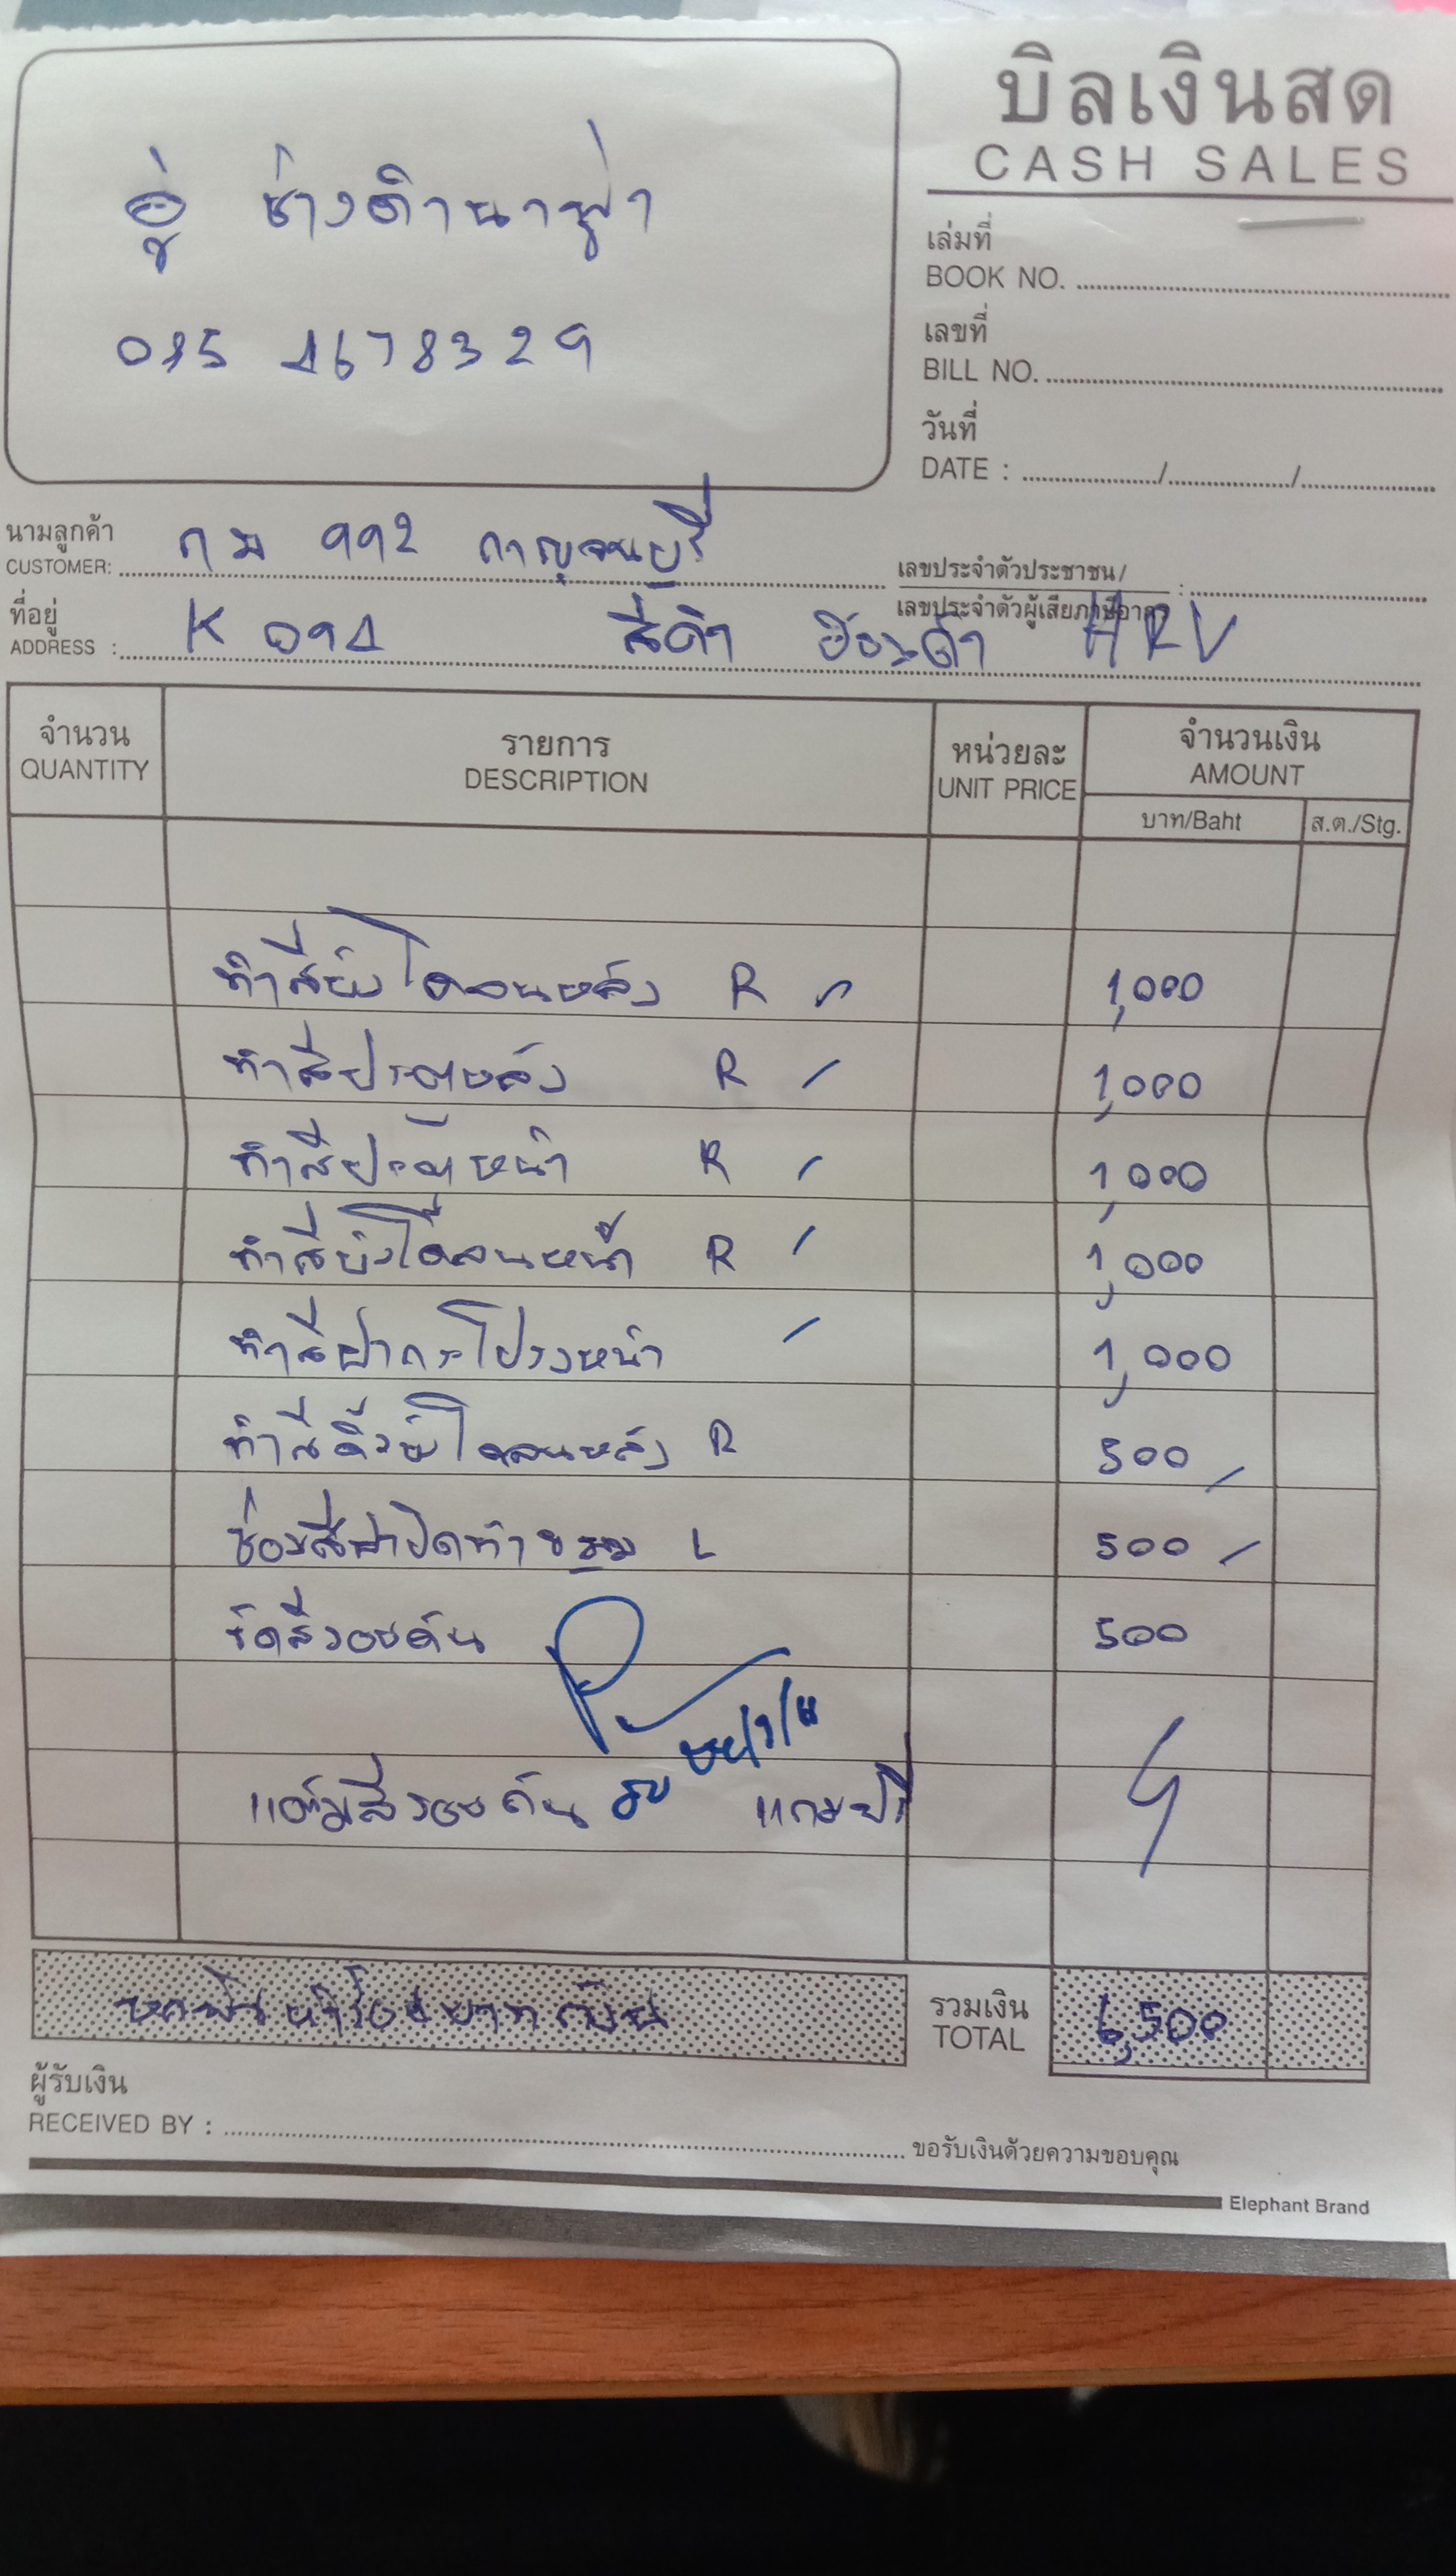 บิลเงินสด
CASH SALES
อู่ ช่างดำนาฟ่า
085 4678329
เล่มที่
BOOK NO.
เลขที่
BILL NO.
วันที่
DATE : / /
นามลูกค้า
CUSTOMER: กม 992 กาญจนบุรี
เลขประจำตัวประชาชน/
เลขประจำตัวผู้เสียภาษีอากร :
ที่อยู่
ADDRESS : K 094 สีดำ ฮอนด้า HRV
จำนวน รายการ หน่วยละ จำนวนเงิน
QUANTITY DESCRIPTION UNIT PRICE AMOUNT
บาท/Baht ส.ต./Stg.
ทำสีบังโคลนหลัง R 1,000
ทำสีประตูหลัง R 1,000
ทำสีประตูหน้า R 1,000
ทำสีบังโคลนหน้า R 1,000
ทำสีฝากระโปรงหน้า 1,000
ทำสีคิ้วบังโคลนหลัง R 500
ซ่อมสีฝาปิดท้าย L 500
ขัดสีรอบคัน 500
แต้มสีรอบคัน แถมฟรี
หกพันห้าร้อยบาทถ้วน
รวมเงิน
TOTAL 6,500
ผู้รับเงิน
RECEIVED BY : ขอรับเงินด้วยความขอบคุณ
Elephant Brand